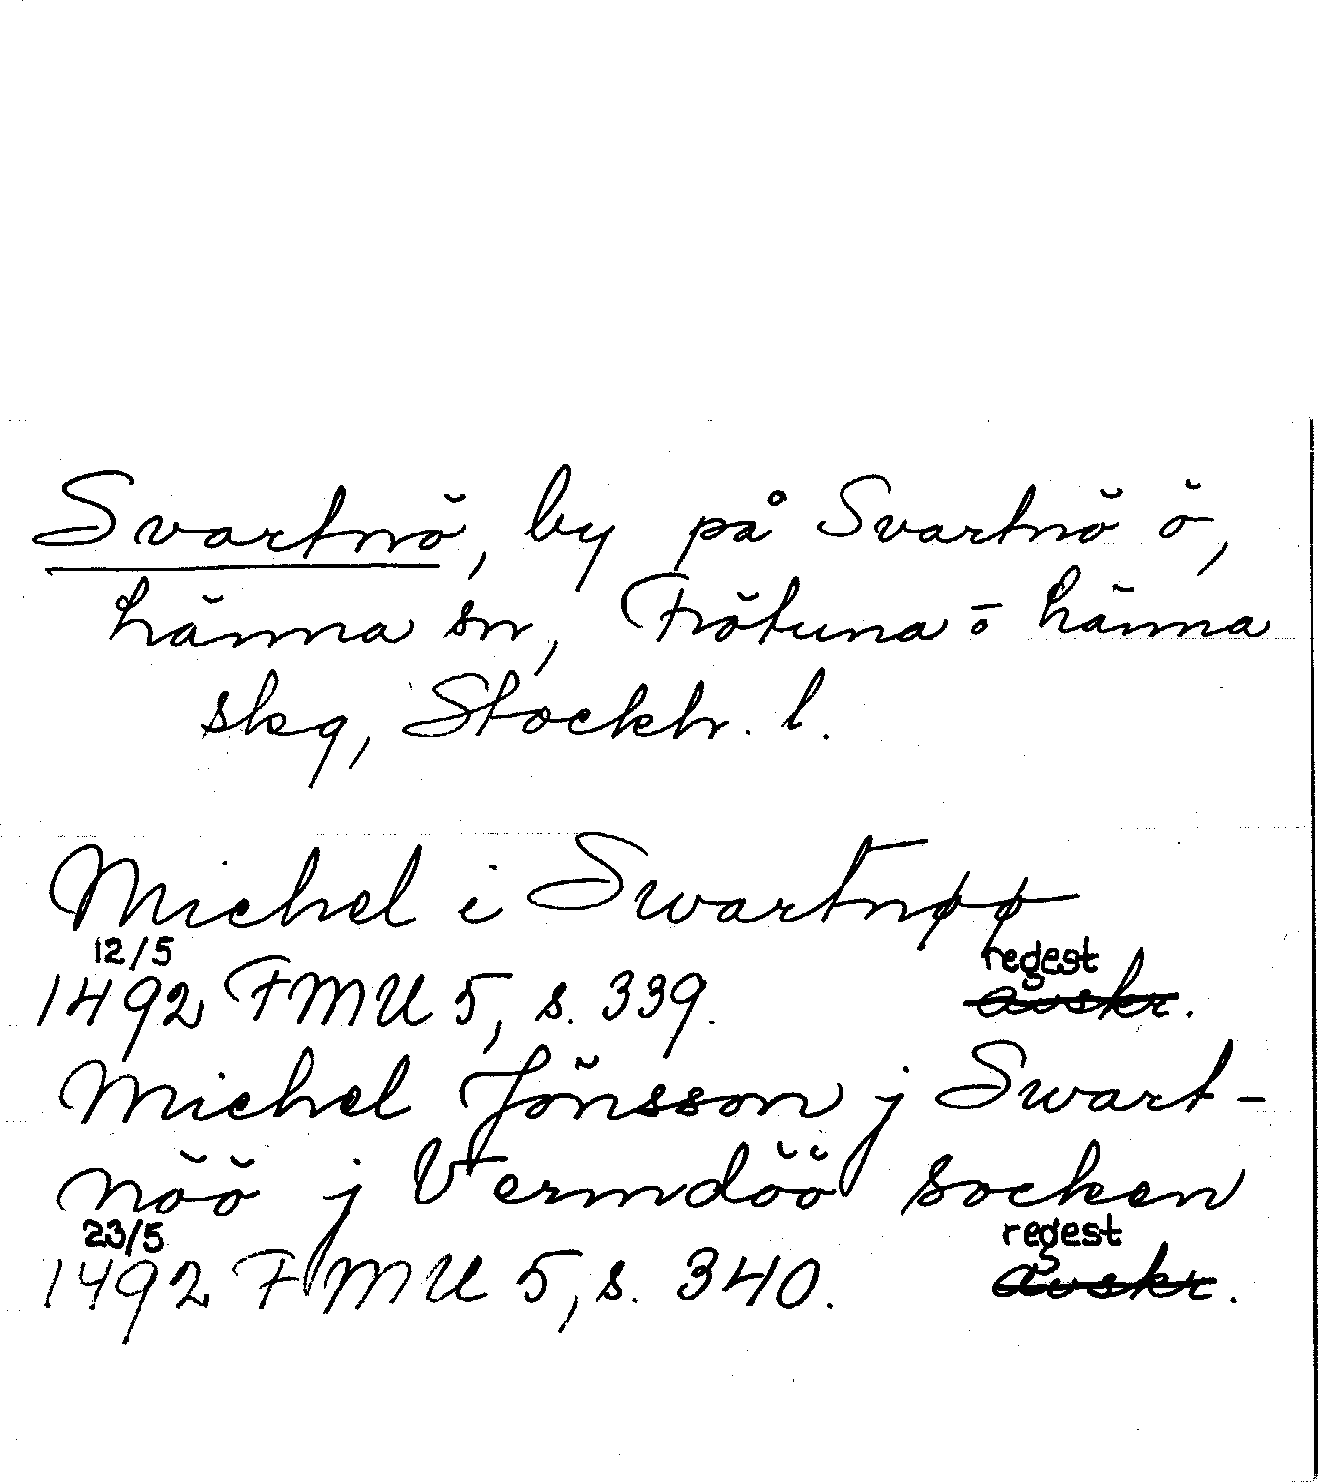 Svartnö, by på Svartnö ö,
Länna sn, Frötuna o Länna
skg, Stockh. l.
Michel i Swartnøø
12/5 regest
1492 FMU 5, s. 339. avskr.
Michel Jönsson j Swart-
nöö j Vermdöö socken
23/5 regest
1492 FMU 5, s. 340. avskr.